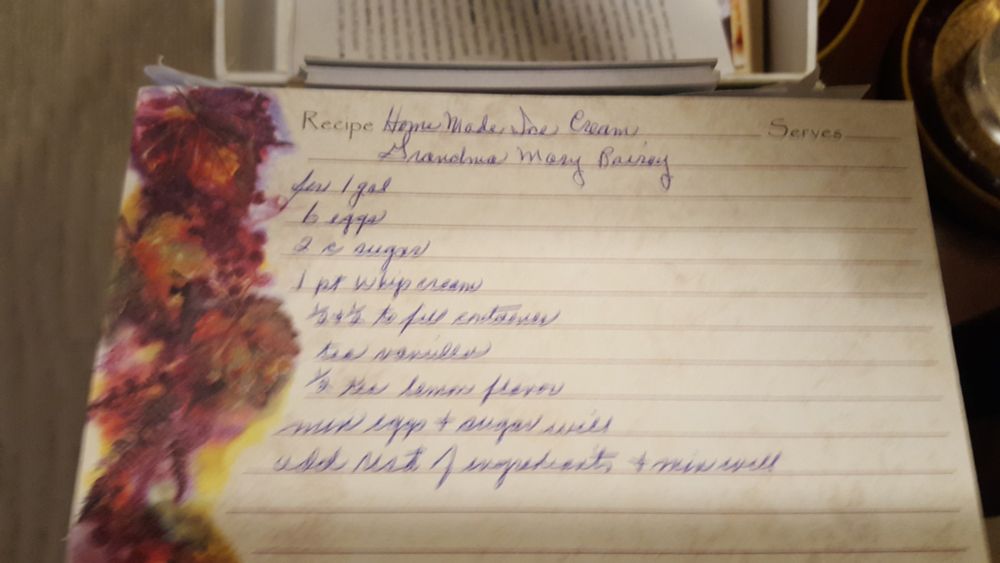 Recipe Home Made Ice Cream Serves
Grandma Mary
for 1 gal
6 eggs
2 c sugar
1 pt whip cream
1/2 & 1/2 to fill container
tea vanilla
1/2 tea lemon flavor
mix eggs + sugar well
add rest of ingredients + mix well